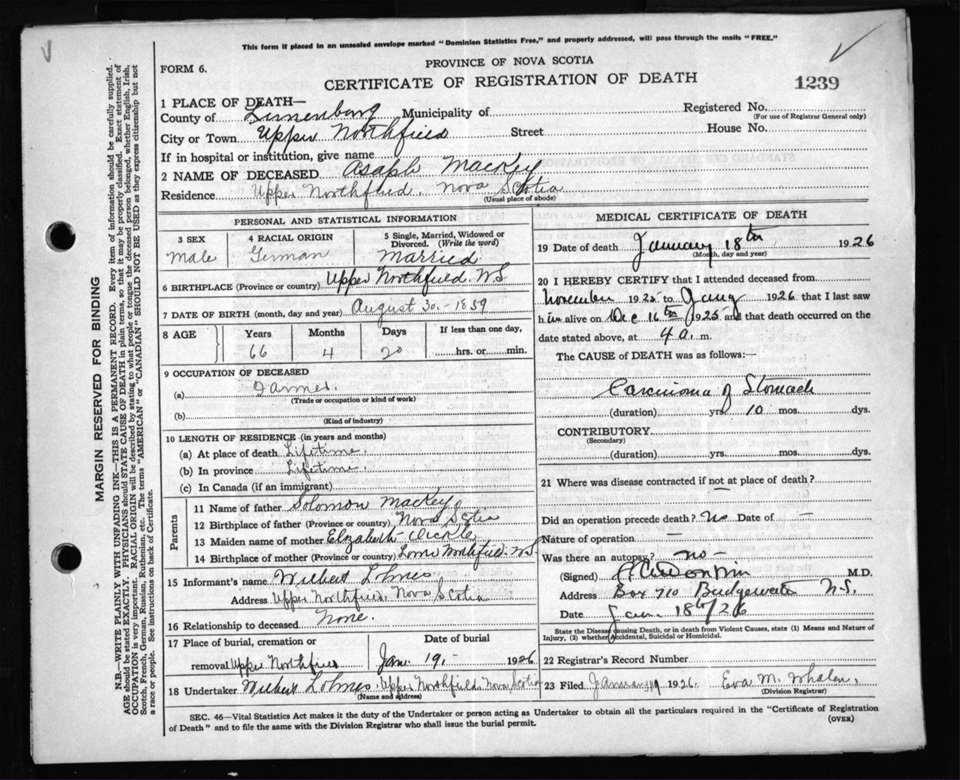 This form if placed in an unsealed envelope marked "Dominion Statistics Free," and properly addressed, will pass through the mails "FREE."
PROVINCE OF NOVA SCOTIA
FORM 6.
CERTIFICATE OF REGISTRATION OF DEATH
1239
1 PLACE OF DEATH—
County of Lunenburg Municipality of
Registered No.
(For use of Registrar General only)
City or Town Upper Northfield Street House No.
If in hospital or institution, give name
2 NAME OF DECEASED Asaph Mackey
Residence Upper Northfield, Nova Scotia
(Usual place of abode)
PERSONAL AND STATISTICAL INFORMATION
3 SEX
Male
4 RACIAL ORIGIN
German
5 Single, Married, Widowed or Divorced. (Write the word)
Married
6 BIRTHPLACE (Province or country) Upper Northfield N.S
7 DATE OF BIRTH (month, day and year) August 30 - 1859
8 AGE
Years Months Days If less than one day,
66 4 20 hrs. or min.
9 OCCUPATION OF DECEASED
(a) Farmer.
(Trade or occupation or kind of work)
(b)
(Kind of industry)
10 LENGTH OF RESIDENCE (in years and months)
(a) At place of death Lifetime.
(b) In province Lifetime.
(c) In Canada (if an immigrant)
Parents
11 Name of father Solomon Mackey
12 Birthplace of father (Province or country) Nova Scotia
13 Maiden name of mother Elizabeth
14 Birthplace of mother (Province or country) Northfield. N.S.
15 Informant's name Wilbert Lohnes
Address Upper Northfield, Nova Scotia
16 Relationship to deceased None.
17 Place of burial, cremation or removal Upper Northfield
Date of burial
Jan. 19, - 1926
18 Undertaker Wilbert Lohnes. Upper Northfield, Nova Scotia
(Name and address)
MEDICAL CERTIFICATE OF DEATH
19 Date of death January 18th 1926
(Month, day and year)
20 I HEREBY CERTIFY that I attended deceased from
November 1925 to 1926 that I last saw
him alive on Dec 16th 1925 and that death occurred on the
date stated above, at 4 a. m.
The CAUSE of DEATH was as follows:—
Carcinoma of Stomach
(duration) yrs. 10 mos. dys.
CONTRIBUTORY
(Secondary)
(duration) yrs. mos. dys.
21 Where was disease contracted if not at place of death?
Did an operation precede death? No Date of —
Nature of operation —
Was there an autopsy? no -
(Signed) M.D.
Address Box 710 Bridgewater N.S.
Date Jan 18th/26
State the Disease causing Death, or in death from Violent Causes, state (1) Means and Nature of
Injury, (2) whether Accidental, Suicidal or Homicidal.
22 Registrar's Record Number
23 Filed January 19 1926. Eva M. Whalen,
(Division Registrar)
SEC. 46—Vital Statistics Act makes it the duty of the Undertaker or person acting as Undertaker to obtain all the particulars required in the "Certificate of Registration
of Death" and to file the same with the Division Registrar who shall issue the burial permit.
(OVER)
MARGIN RESERVED FOR BINDING
N.B.—WRITE PLAINLY WITH UNFADING INK—THIS IS A PERMANENT RECORD. Every item of information should be carefully supplied.
AGE should be stated EXACTLY. PHYSICIANS should STATE CAUSE OF DEATH in plain terms, so that it may be properly classified. Exact statement of
OCCUPATION is very important. RACIAL ORIGIN will be described by stating to what people or tongue the deceased person belonged, whether English, Irish,
Scotch, French, German, Russian, Ruthenian, etc. The terms "AMERICAN" or "CANADIAN" SHOULD NOT BE USED as they express citizenship but not
a race or people. See instructions on back of Certificate.